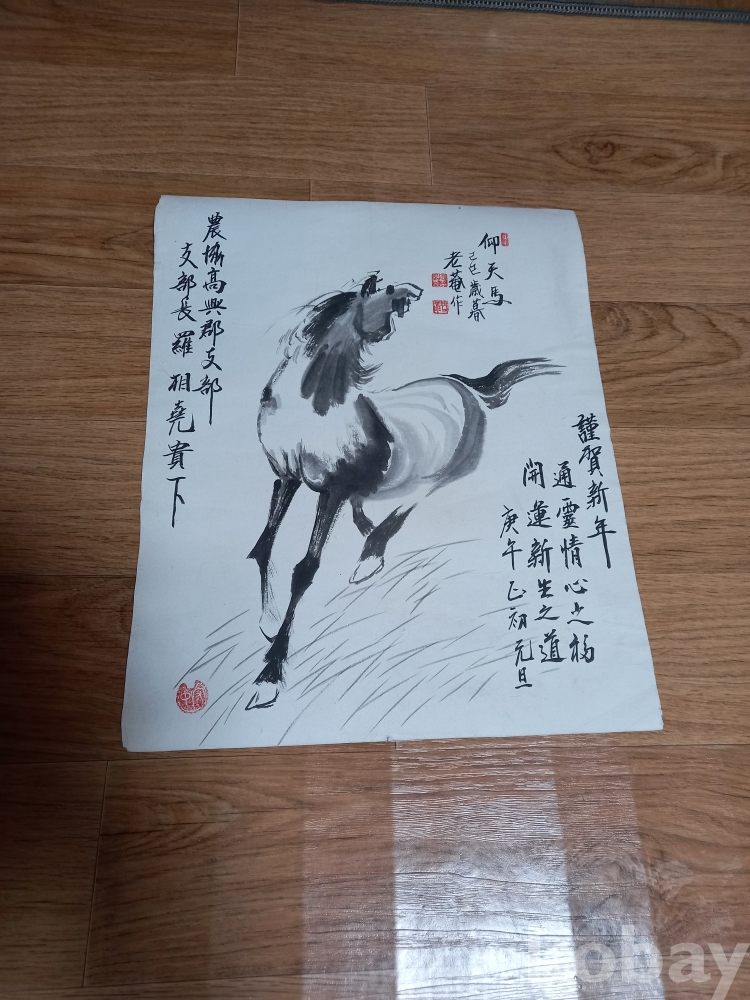 仰天馬
己巳歲暮
老菴作
謹賀新年
通靈情心之福
開運新生之道
庚午正初元旦
農協高興郡支部
支部長羅相堯貴下
kobay